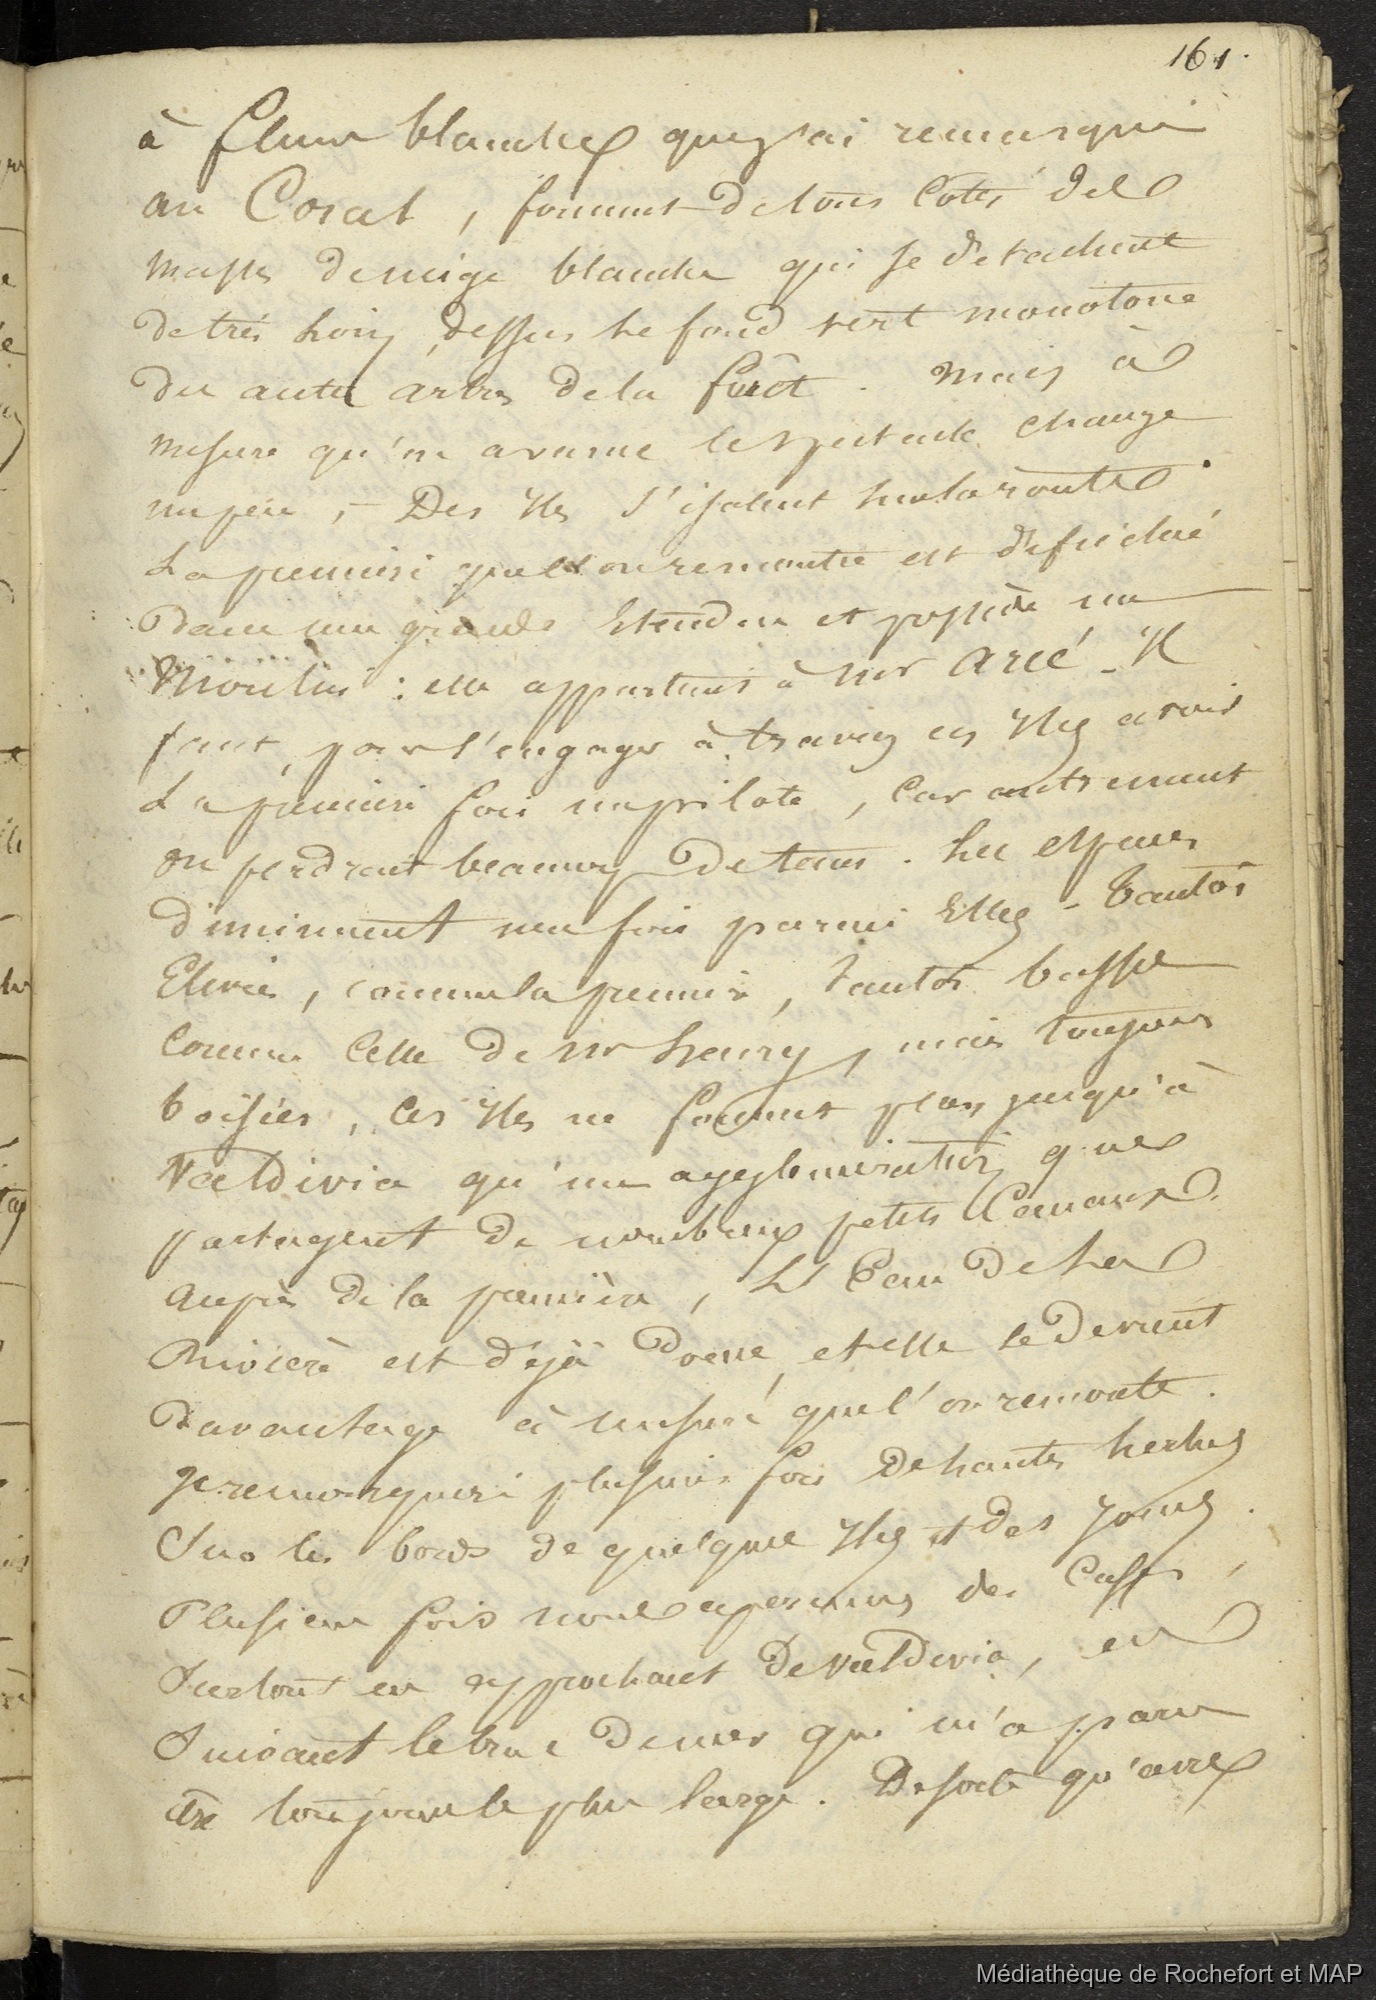 161.
à fleur blanches que j'ai remarqué
au Coral, forment de tous Cotés des
masses de neige blanche qui se détachent
de très loin, dessus le fond vert monotone
des autres arbres de la forêt. Mais à
mesure qu'on avance le spectacle change
un peu, - Des Iles s'isolent sur la route.
La première que l'on rencontre est défriché
Dans une grande Etendue et possède un
Moulin : elle appartient à Mr - Il
faut, pour s'engager à travers ces Iles avoir
La première fois un pilote, Car autrement
on perdrait beaucoup de tems. Les espaces
diminuent une fois parmi Elles - Tantôt
Elevées, comme la première, tantôt basses
Comme Celle de Mr henry, mais toujours
boisées, Ces Iles ne forment plus jusqu'à
Valdivia qu'une agglomération que
partagent de nombreux petits Canaux.
Auprès de la première, L'Eau de la
Rivière est déjà Douce, et elle le devient
Davantage à mesure que l'on remonte.
Je remarquai plusieurs fois de hautes herbes
Sur les bords de quelques Iles et des Joncs.
Plusieurs fois nous aperçumes des Casses,
Surtout en approchant de Valdivia, en
Suivant le bras de mer qui m'a paru
être toujours le plus large. De sorte qu'avec
Médiathèque de Rochefort et MAP